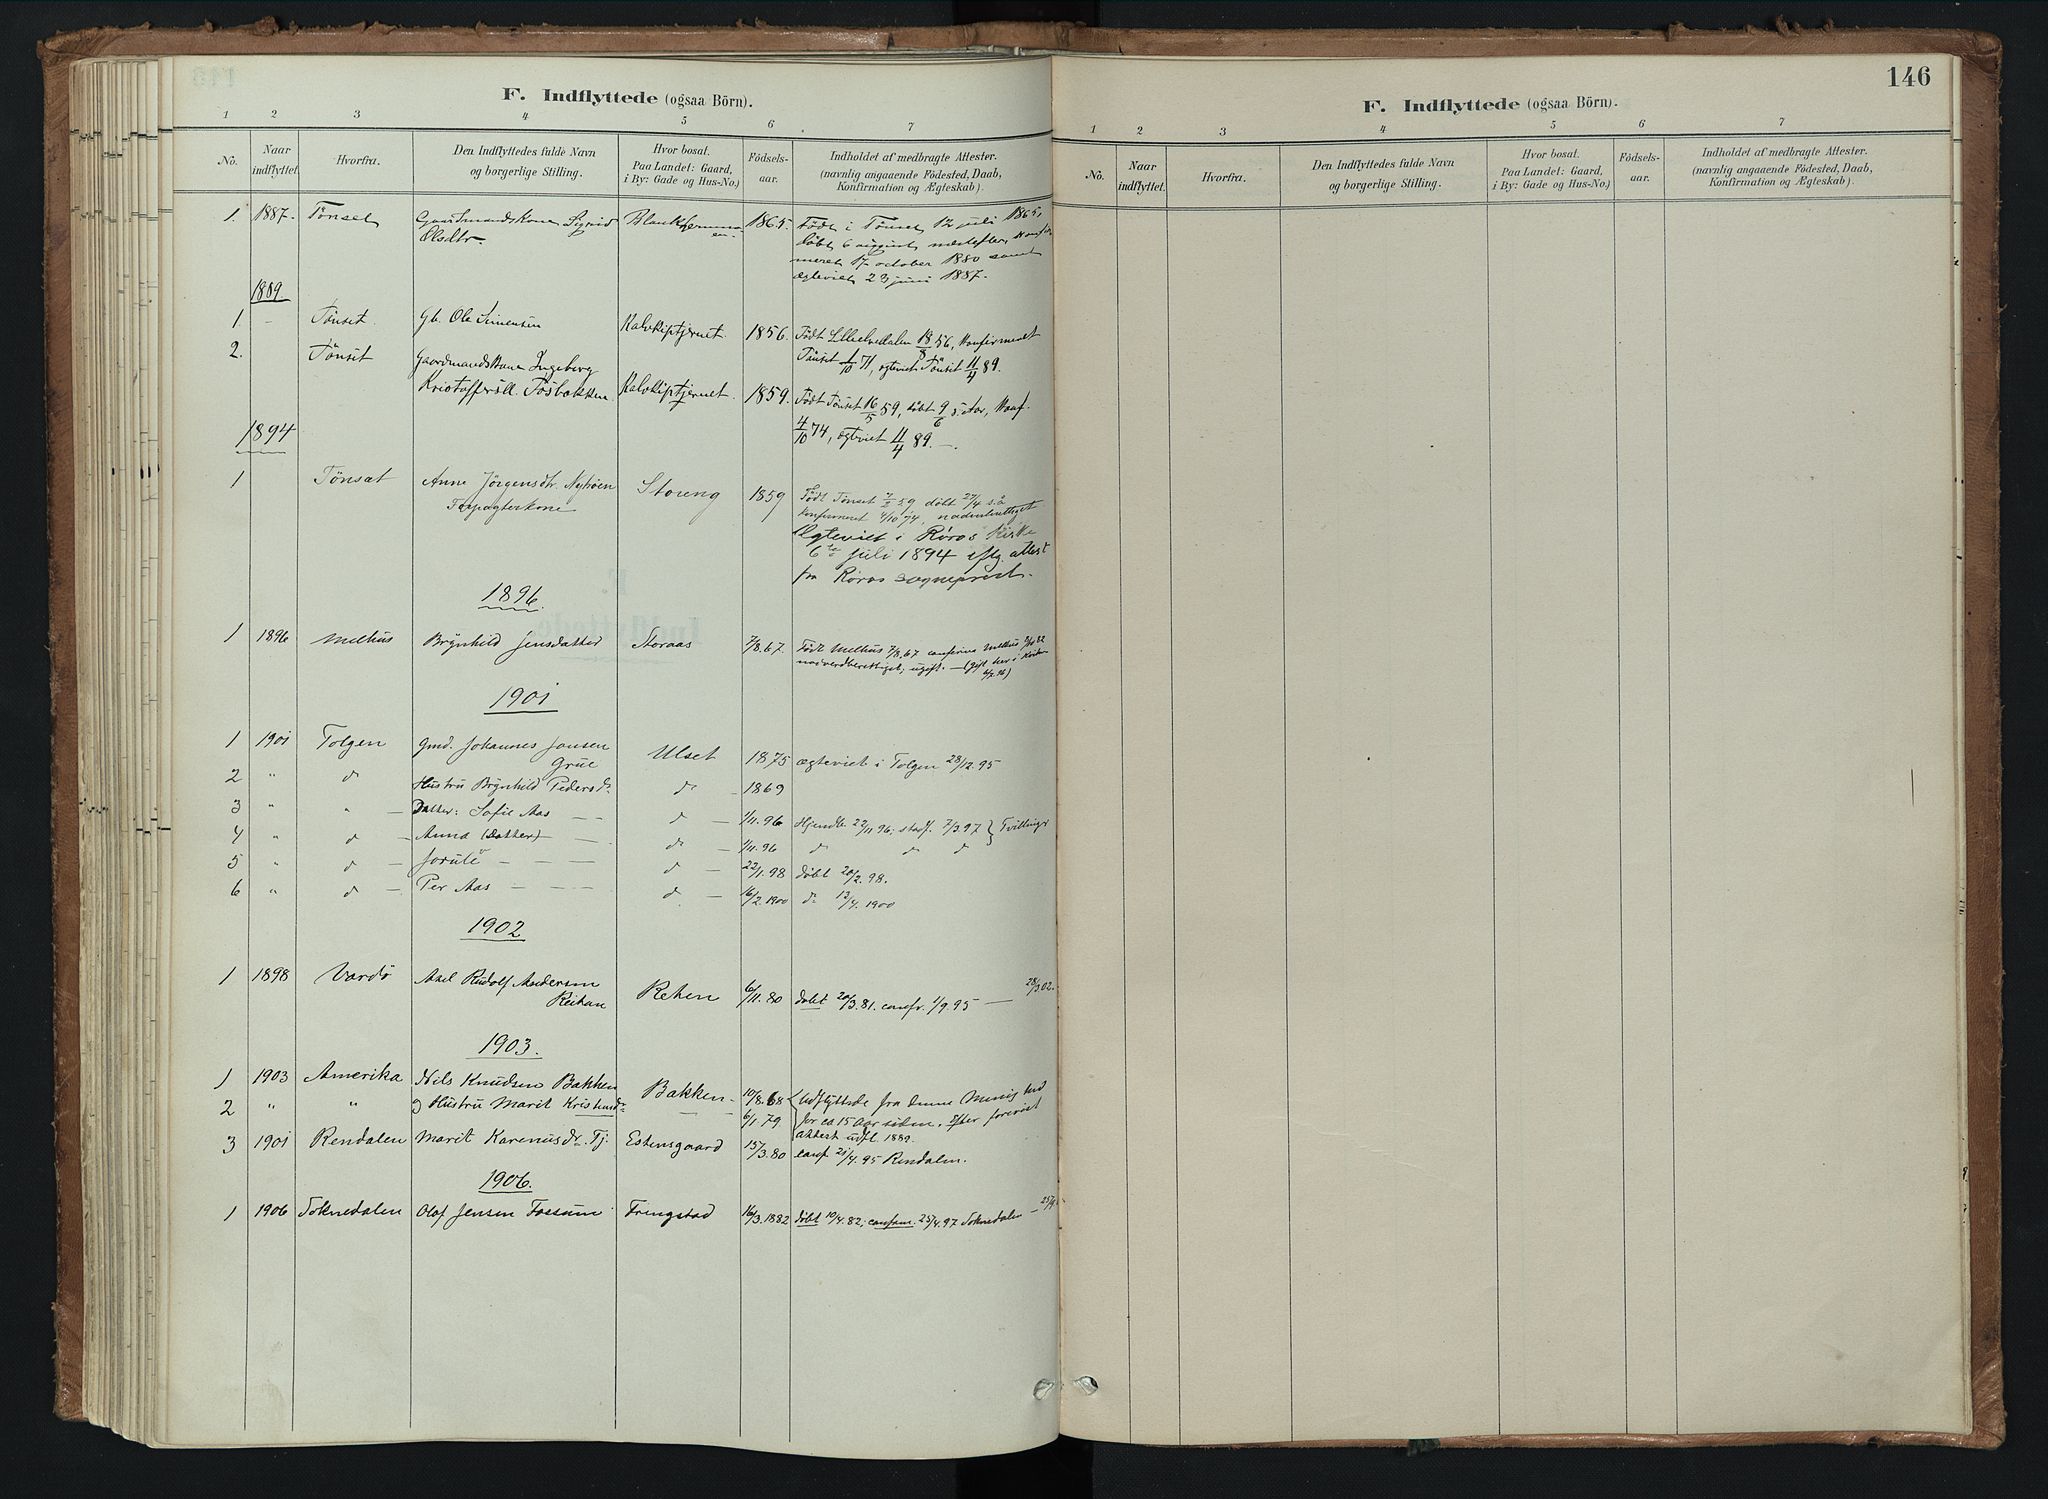 F. Indflyttede (ogsaa Börn).
1 2 3 4 5 6 7
No. Naar indflyttet. Hvorfra. Den Indflyttedes fulde Navn og borgerlige Stilling. Hvor bosat. Paa Landet: Gaard, i By: Gade og Hus-No.) Födsels-aar. Indholdet af medbragte Attester. (navnlig angaaende Födested, Daab, Konfirmation og Ægteskab).
1. 1887. Tönset Gaardmandskone Sigrid 1865. Födt i Tönset 12 juli 1865,
Olsdtr. döbt 6 august næstefter,
17 october 1880 samt
ægteviet 23 juni 1887.
1889.
1. - Tönset. Gb. Ole Simensen Kalvkiptjernet 1856. Födt Lilleelvedalen 18/8 56, Konfirmeret
Tönset 1/10 71, ægteviet Tönset 11/4 89.
2. Tönset Gaardmandskone Ingeborg
Kristoffersdt. Tosbakken Kalvkiptjernet. 1859. Födt Tönset 16/5 59, döbt 9/6 s. Aar, Konf.
4/10 74, ægteviet 11/4 89. —
1894
1 Tönset Anne Jörgensdtr. Nyhöen Storeng 1859 Födt Tönset 7/2 59 döbt 27/4 s. å
Forpagterkone konfirmeret 4/10 74,
Ægteviet i Röros Kirke
6te juli 1894 eftg. attest
fra Röros sogneprest.
1896.
1 1896 Melhus Brÿnhild Jensdatter Storaas 7/8.67. Födt Melhus 7/8.67 confirm. Melhus
nadverdberettiget, ugift. — (gift her i
1901
1 1901 Tolgen Gmd. Johannes Jonsen Ulset 1875 ægteviet i Tolgen 28/12.95
Grue
2 " d Hustru Brÿnhild Pedersd. d — 1869
3 " " — Datter: Sofie Aas — — d — 1/11.96 Hjemdb. 22/11 96; stadf. 7/3.97 } Tvillinger
4 " d — Anna (Datter) — — d — 1/11.96 d d d
5 " d — — — — d — 22/1.98 döbt 20/2.98.
6 " d — Per Aas — — — d — 16/2.1900 d 13/4.1900
1902
1 1898 Vardö Axel Rudolf Andersen Reitan Rehen 6/11.80 döbt 20/3.81. confr. 1/9.95 — 28/3 02.
1903.
1 1903 Amerika Nils Knudsen Bakken Bakken — 10/8.68 { Udflyttede fra denne Menighed
2 " " og Hustru Marit — — 6/1.79 for ca 15 Aar siden. Efter forevist
attest udfl. 1889.
3 1901 Rendalen Marit Karenusdr. Tj. Estensgaard 15/3.80 conf. 21/4.95 Rendalen.
1906.
1 1906 Soknedalen Olof Jensen Fossum Fringstad 16/3.1882 döbt 10/4.82; confirm. 25/4.97 Soknedalen —
146
F. Indflyttede (ogsaa Börn).
1 2 3 4 5 6 7
No. Naar indflyttet. Hvorfra. Den Indflyttedes fulde Navn og borgerlige Stilling. Hvor bosat. Paa Landet: Gaard, i By: Gade og Hus-No.) Födsels-aar. Indholdet af medbragte Attester. (navnlig angaaende Födested, Daab, Konfirmation og Ægteskab).